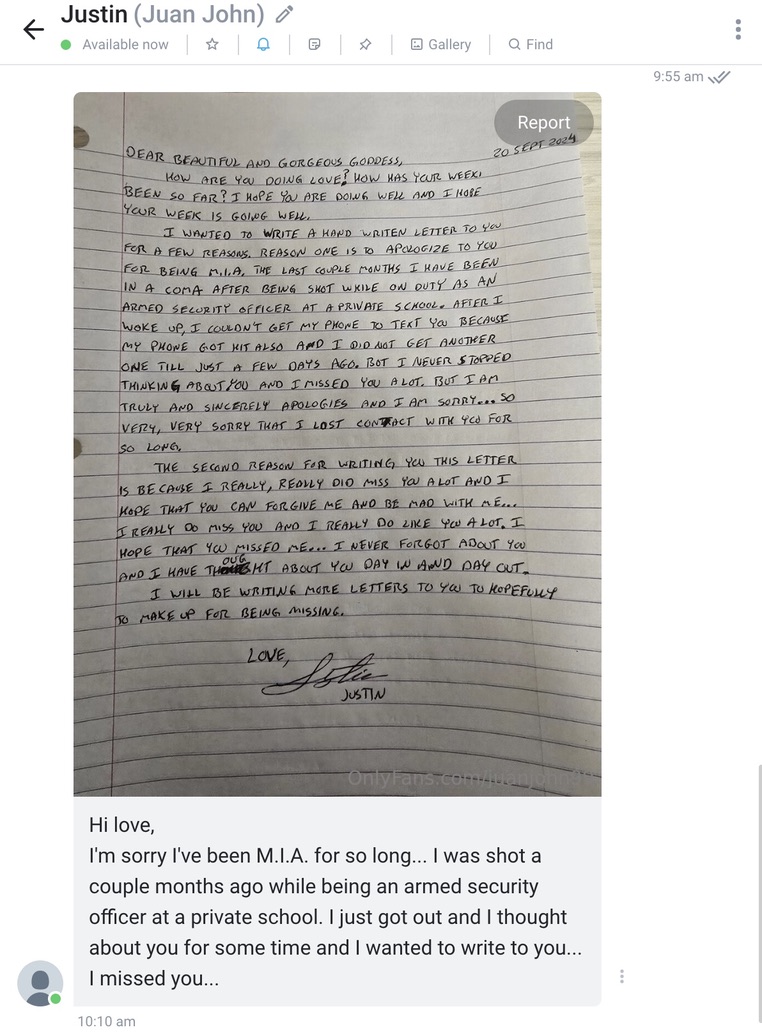 Justin (Juan John)
Available now
Gallery
Find
9:55 am
Report
20 SEPT 2024
DEAR BEAUTIFUL AND GORGEOUS GODDESS,
HOW ARE YOU DOING LOVE? HOW HAS YOUR WEEK
BEEN SO FAR? I HOPE YOU ARE DOING WELL AND I HOPE
YOUR WEEK IS GOING WELL.
I WANTED TO WRITE A HAND WRITEN LETTER TO YOU
FOR A FEW REASONS. REASON ONE IS TO APOLOGIZE TO YOU
FOR BEING M.I.A, THE LAST COUPLE MONTHS I HAVE BEEN
IN A COMA AFTER BEING SHOT WHILE ON DUTY AS AN
ARMED SECURITY OFFICER AT A PRIVATE SCHOOL. AFTER I
WOKE UP, I COULDN'T GET MY PHONE TO TEXT YOU BECAUSE
MY PHONE GOT HIT ALSO AND I DID NOT GET ANOTHER
ONE TILL JUST A FEW DAYS AGO. BUT I NEVER STOPPED
THINKING ABOUT YOU AND I MISSED YOU A LOT. BUT I AM
TRULY AND SINCERELY APOLOGIES AND I AM SORRY... SO
VERY, VERY SORRY THAT I LOST CONTACT WITH YOU FOR
SO LONG.
THE SECOND REASON FOR WRITING YOU THIS LETTER
IS BECAUSE I REALLY, REALLY DID MISS YOU A LOT AND I
HOPE THAT YOU CAN FORGIVE ME AND BE MAD WITH ME...
I REALLY DO MISS YOU AND I REALLY DO LIKE YOU A LOT. I
HOPE THAT YOU MISSED ME... I NEVER FORGOT ABOUT YOU
AND I HAVE THOUGHT ABOUT YOU DAY IN AND DAY OUT.
I WILL BE WRITING MORE LETTERS TO YOU TO HOPEFULLY
TO MAKE UP FOR BEING MISSING.
LOVE,
Justin
JUSTIN
Hi love,
I'm sorry I've been M.I.A. for so long... I was shot a
couple months ago while being an armed security
officer at a private school. I just got out and I thought
about you for some time and I wanted to write to you...
I missed you...
10:10 am